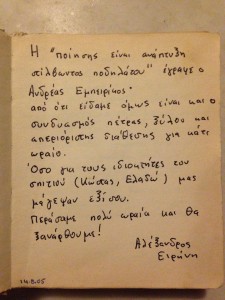 Η "ποίησης είναι ανάπτυξη
στίλβοντος ποδηλάτου" έγραψε ο
Ανδρέας Εμπειρίκος -
από ότι είδαμε όμως είναι και ο
συνδυασμός πέτρας, ξύλου και
απεριόριστης διάθεσης για κάτι
ωραίο.
Όσο για τους ιδιοκτήτες του
σπιτιού (Κώστας, Ελαδώ) μας
μάγεψαν εξίσου.
Περάσαμε πολύ ωραία και θα
ξανάρθουμε!
Αλέξανδρος
Ειρήνη
14.8.05